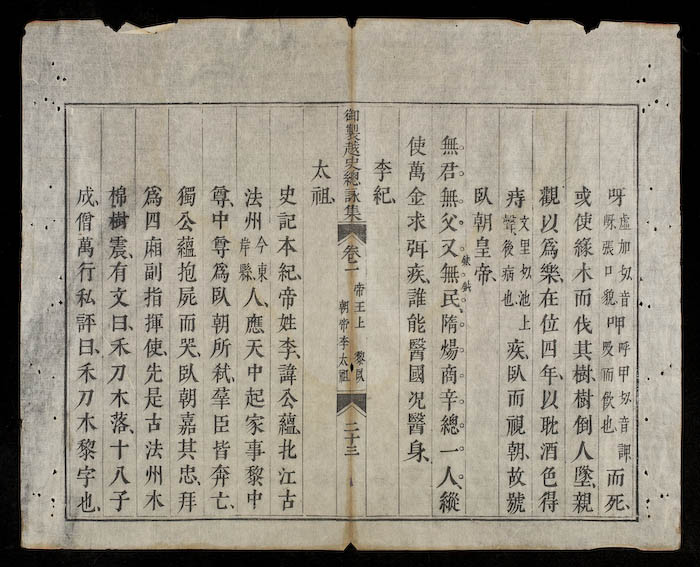 呀虛加切音張口貌呷呼甲切音吸而飲也而死、
或使緣木而伐其樹、樹倒人墜、親
觀以爲樂、在位四年、以耽酒色得
痔丈里切池上聲、後病也疾、臥而視朝、故號
臥朝皇帝、
無君無父又無民、隋煬商辛總一人、縱
使萬金求弭疾、誰能醫國况醫身、
李紀、
御製越史總詠集 卷一 帝王上 黎臥朝帝李太祖 二十三
太祖、
史記本紀、帝姓李、諱公蘊、北江古
法州今東岸縣、人、應天中起家事黎中
尊、中尊爲臥朝所弒、羣臣皆奔亡、
獨公蘊抱屍而哭、臥朝嘉其忠、拜
爲四廂副指揮使、先是古法州木
棉樹震、有文曰、禾刀木落、十八子
成、僧萬行私評曰、禾刀木黎字也、